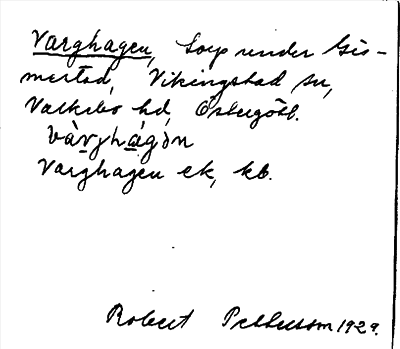 Varghagen, torp under Gis-
mestad, Vikingstad sn,
Valkebo hd, Östergötl.
vàrjhágən
Varghagen ek, kb.
Robert Pettersson 1929.